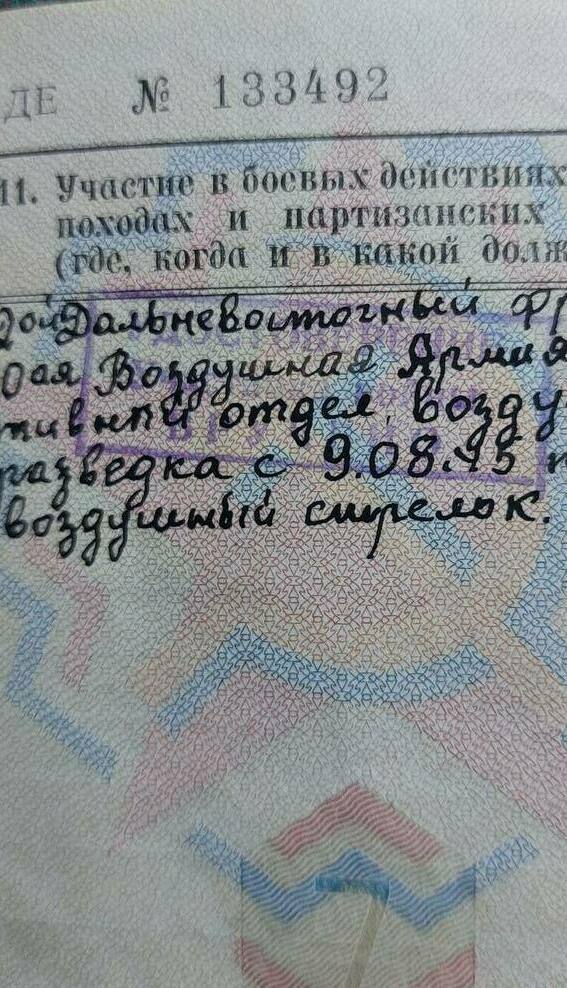 ДЕ № 133492
11. Участие в боевых действиях
походах и партизанских
(где, когда и в какой долж
2ой Дальневосточный фр
0ая Воздушная Армия
тивный отдел, возду
разведка с 9.08.45 п
воздушный стрелок.